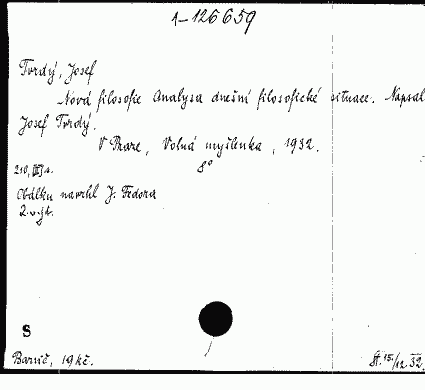 1-126659
Tvrdý, Josef
Nová filosofie Analysa dnešní filosofické situace. Napsal
Josef Tvrdý.
V Praze, Volná myšlenka, 1932.
210, [III] s. 8°
Obálku navrhl J. Fedora
S
19 kč. 15./12.32.